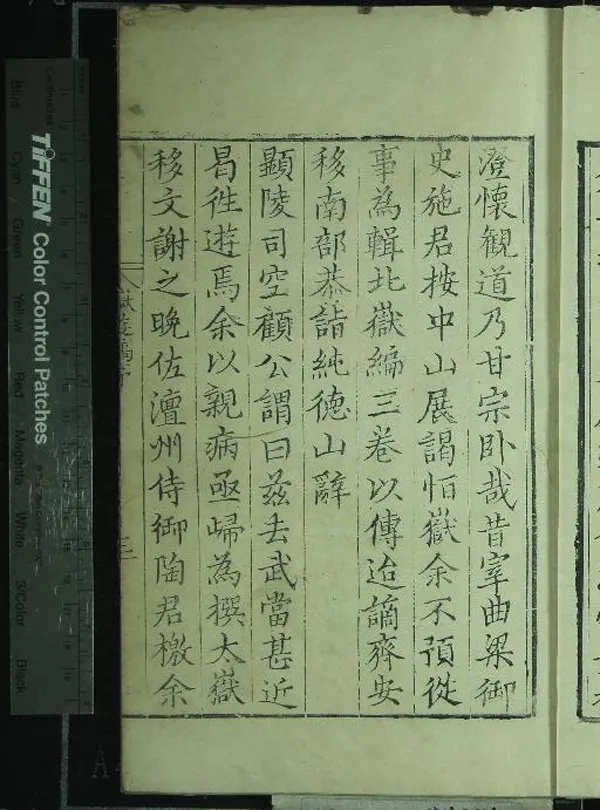 澄懷觀道乃甘宗卧哉昔宰曲梁御
史施君按中山展謁恒嶽余不預從
事為輯北嶽編三卷以傳迨謫齊安
移南部恭詣純德山辭
顯陵司空顧公謂曰兹去武當甚近
曷徃遊焉余以親病亟歸為撰太嶽
移文謝之晚佐澶州侍御陶君檄余
TIFFEN Color Control Patches
Blue Cyan Green Yellow Red Magenta White 3/Color Black